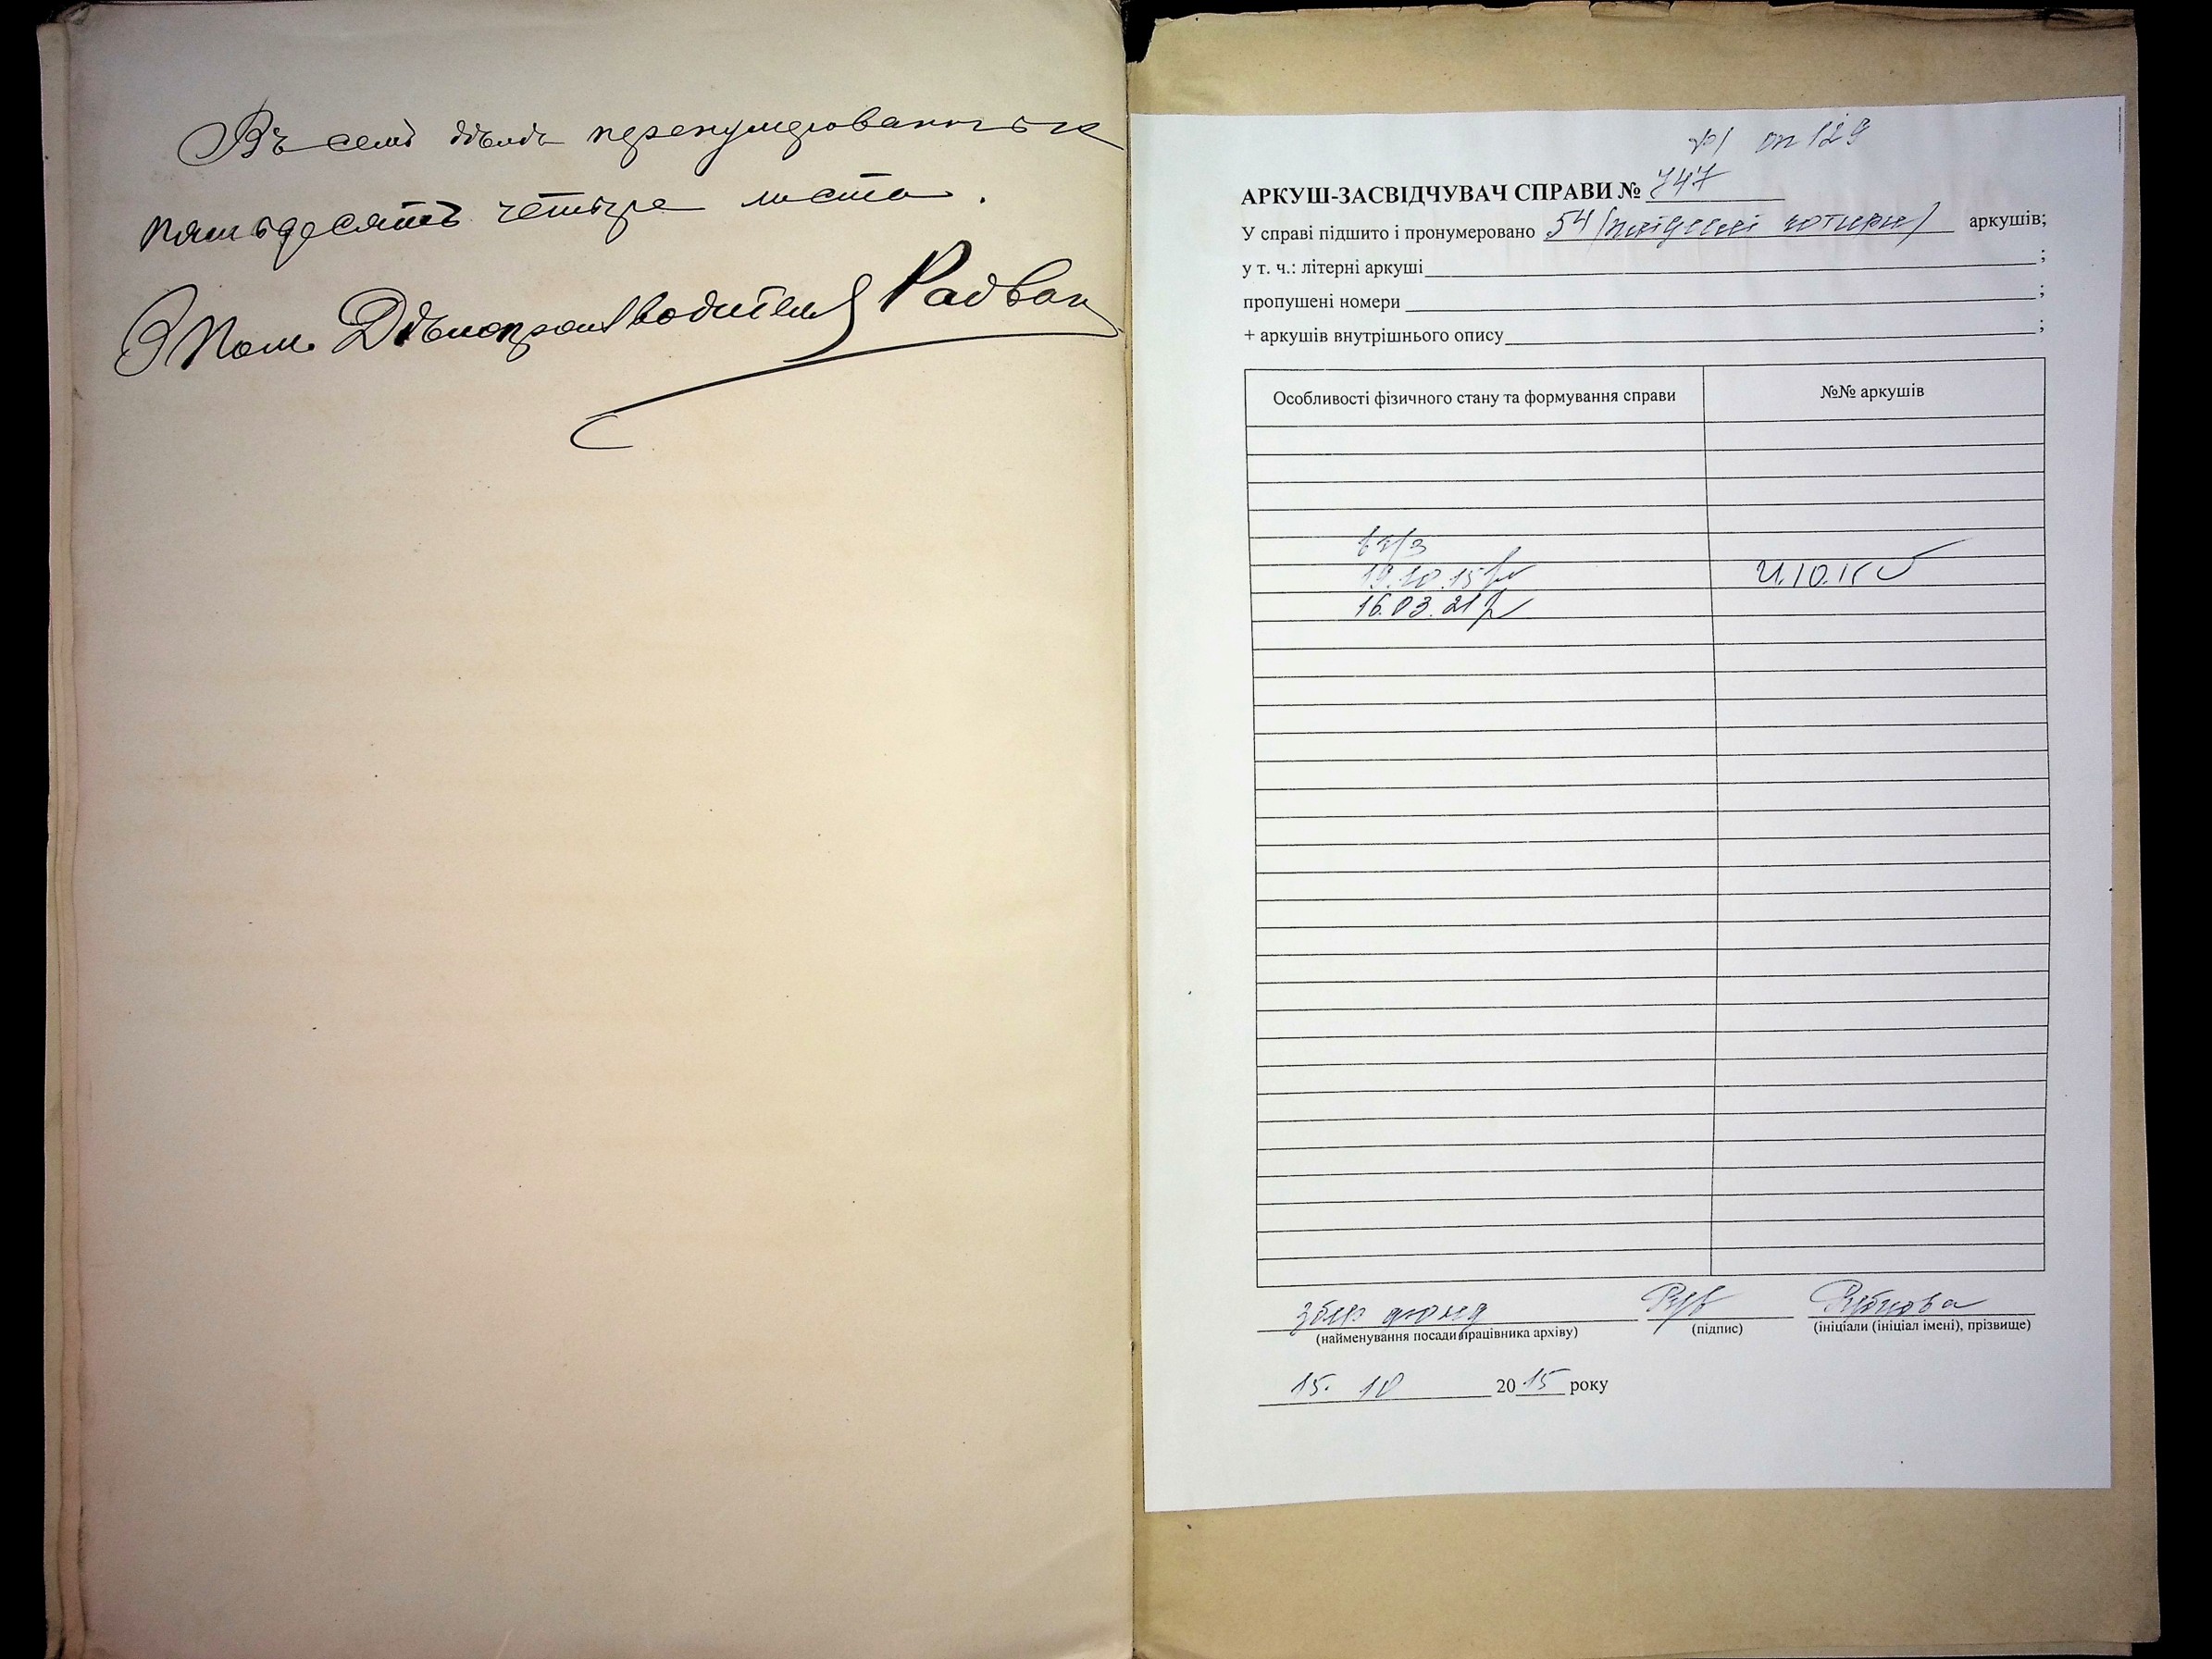 Въ семъ дѣлѣ перенумерованныхъ
пятьдесятъ четыре листа.
Пом. Дѣлопроизводителя Радван
ф1 оп 129
АРКУШ-ЗАСВІДЧУВАЧ СПРАВИ № 747
У справі підшито і пронумеровано 54 (пятдесят чотири) аркушів;
у т. ч.: літерні аркуші ;
пропушені номери ;
+ аркушів внутрішнього опису ;
Особливості фізичного стану та формування справи №№ аркушів
19.10.15
16.03.21
збер фонд
(найменування посади працівника архіву) (підпис) (ініціали (ініціал імені), прізвище)
15. 10 2015 року